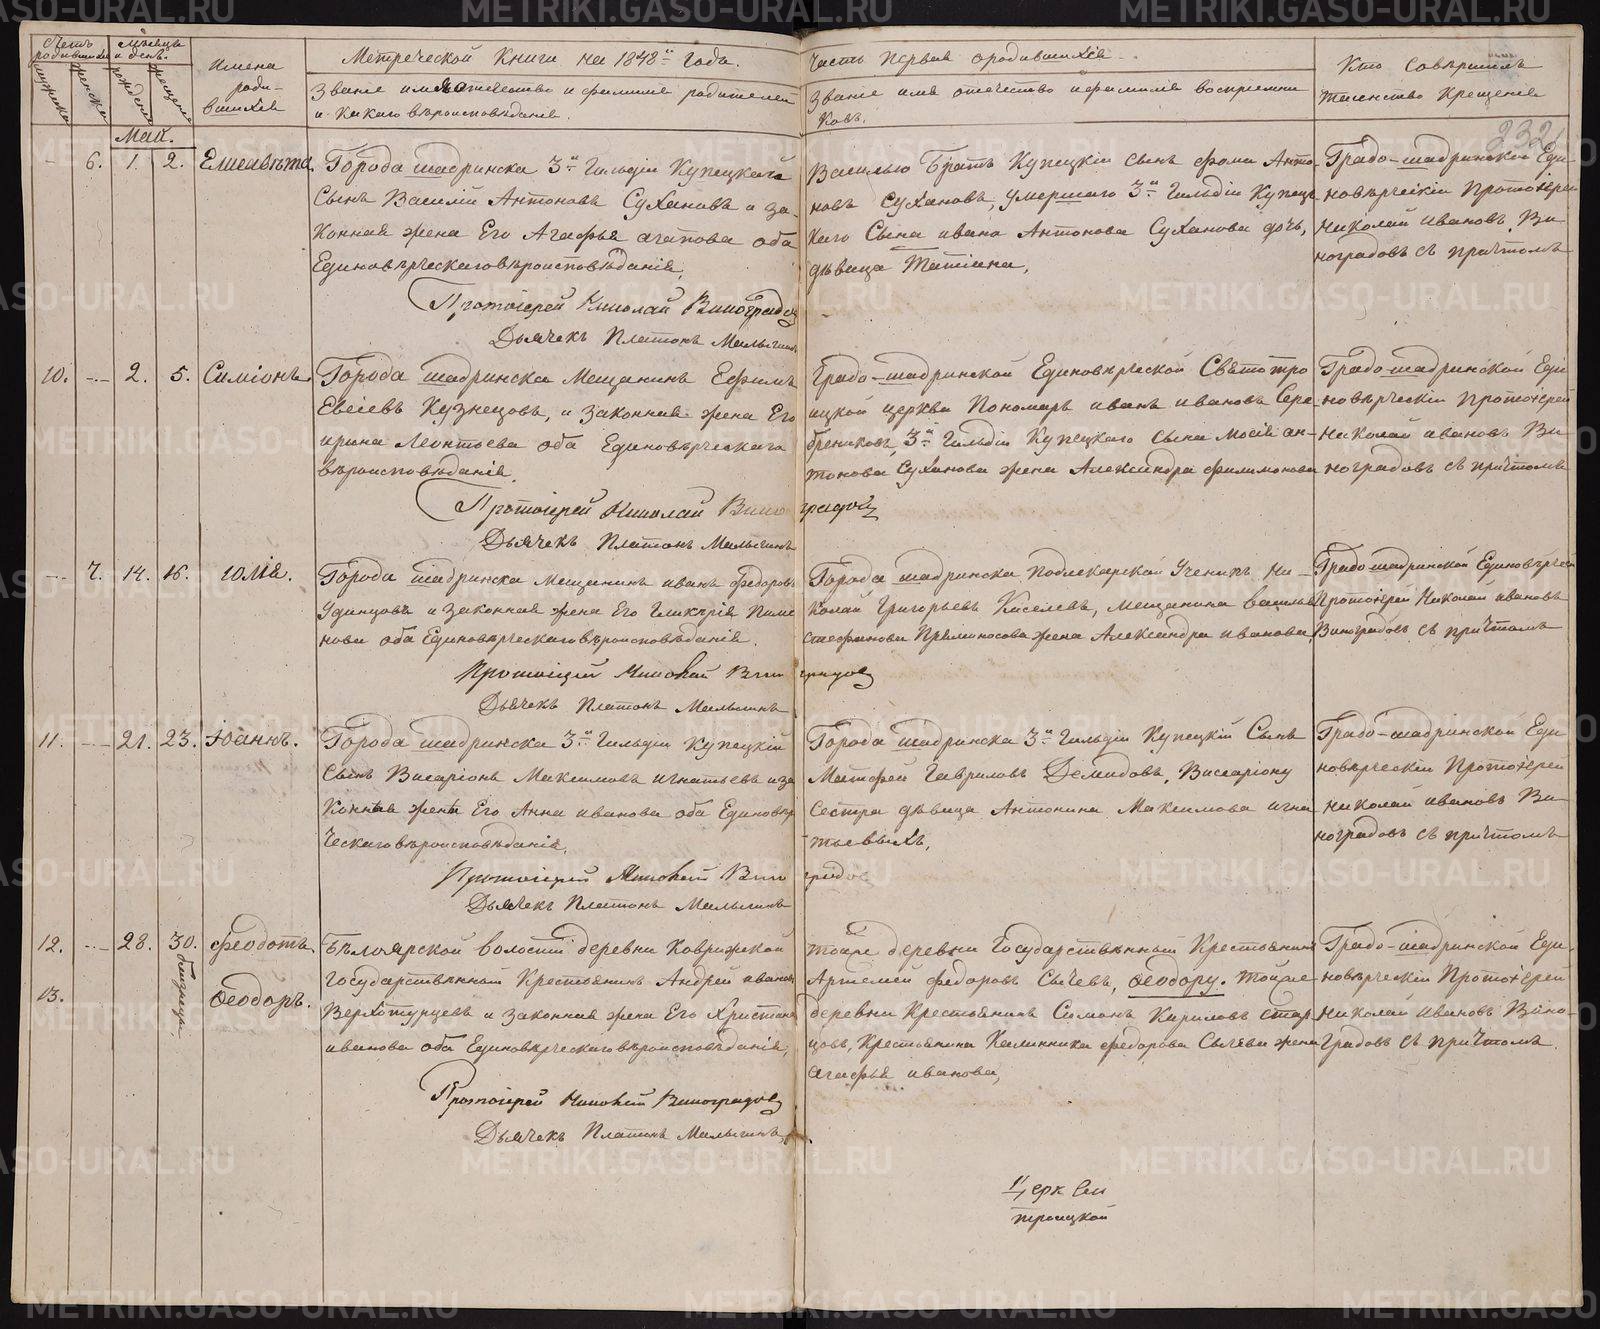 Метреческой Книги на 1848й годъ.
Часть первая о родившихся
Счетъ родившихся
Мѣсяцъ и день.
Имена родившихся
Званіе имя отечество и фамилія родителей
и какаго вѣроисповѣданія.
Званіе имя отечество и фамилія воспріемни
ковъ.
Кто совѣршилъ
таинство крещенія
мужеска
женска
рожденія
крещенія
232
Май.
6. 1. 2. Елисавѣта
Города шадринска 3й гильдіи Купецкаго
Сынъ Василій Антоновъ Сухановъ и за-
конная жена Его Агафья агапова оба
Единовѣрческаго вѣроисповѣданія.
Протоіерей Николай Виноградов
Дьячекъ Платонъ Малыгинъ
Василью Братъ Купецкій сынъ фома Анто
новъ Сухановъ, умершаго 3й гильдіи Купец
каго Сына ивана Антонова Суханова дочь,
дѣвица Татіана.
Градо-шадринской Еди
новѣрческій Протоіерей
Николай ивановъ Ви
ноградовъ съ причтомъ
10. 2. 5. Симіонъ.
Города шадринска Мещанинъ Ефимъ
Евсіевъ Кузнецовъ, и законная жена Его
ирина Леонтьева оба Единовѣрческаго
вѣроисповѣданія.
Протоіерей Николай Виноградов
Дьячекъ Платонъ Малыгинъ
Градо-шадринской Единовѣрческой Святотро
ицкой церкви Пономарь иванъ ивановъ Сере
брениковъ, 3й гильдіи Купецкаго сына Мосія ан-
тонова Суханова жена Александра филимонова
Градо-шадринской Еди
новѣрческій протоіерей
Николай ивановъ Ви
ноградовъ съ причтомъ
7. 14. 16. Юлія.
Города шадринска мещанинъ иванъ федоровъ
Удинцовъ и законная жена Его Гликѣрія Пиме
нова оба Единовѣрческаго вѣроисповѣданія.
Протоіерей Николай Виноградов
Дьячекъ Платонъ Малыгинъ
Города шадринска подлекарской Ученикъ Ни-
колай Григорьевъ Киселевъ, мещанина василья
стефанова Прямоносова жена Александра иванова.
Градо шадринской Единовѣрчески
Протоіерей Николай ивановъ
Виноградовъ съ причтомъ
11. 21. 23. Іоаннъ.
Города шадринска 3й гильдіи Купецкій
Сынъ Висаріонъ Максимовъ игнатьевъ и за
конная жена Его Анна иванова оба Единовѣр
ческаго вѣроисповѣданія.
Протоіерей Николай Виноградов
Дьячекъ Платонъ Малыгинъ
Города шадринска 3й гильдіи Купецкій Сынъ
Матфей Гавриловъ Демидовъ, Висаріону
сестра дѣвица Антонина Максимова игна
тьевыхъ,
Градо-шадринской Еди
новѣрческій Протоіерей
Николай ивановъ Ви
ноградовъ съ причтомъ
12. 28. 30. Феодотъ
13. близнецы Ѳеодоръ.
Бѣлоярской волости деревни Ковригской
государственный Крестьянинъ Андрей иванов
Верхотурцевъ и законная жена Его Христина
иванова оба Единовѣрческаго вѣроисповѣданія,
Протоіерей Николай Виноградов
Дьячекъ Платонъ Малыгинъ,
тояже деревни Государственный Крестьянинъ
Артемей федоровъ Сычевъ, Ѳеодору. Тойже
деревни Крестьянинъ Симонъ Кириловъ Стар
цовъ, Крестьянина Калинника федорова Сычева жена
агафья иванова,
Градо-шадринской Еди-
новѣрческій Протоіерей
Николай ивановъ Вино-
градовъ съ причтомъ.
Церк Свя
троицкой